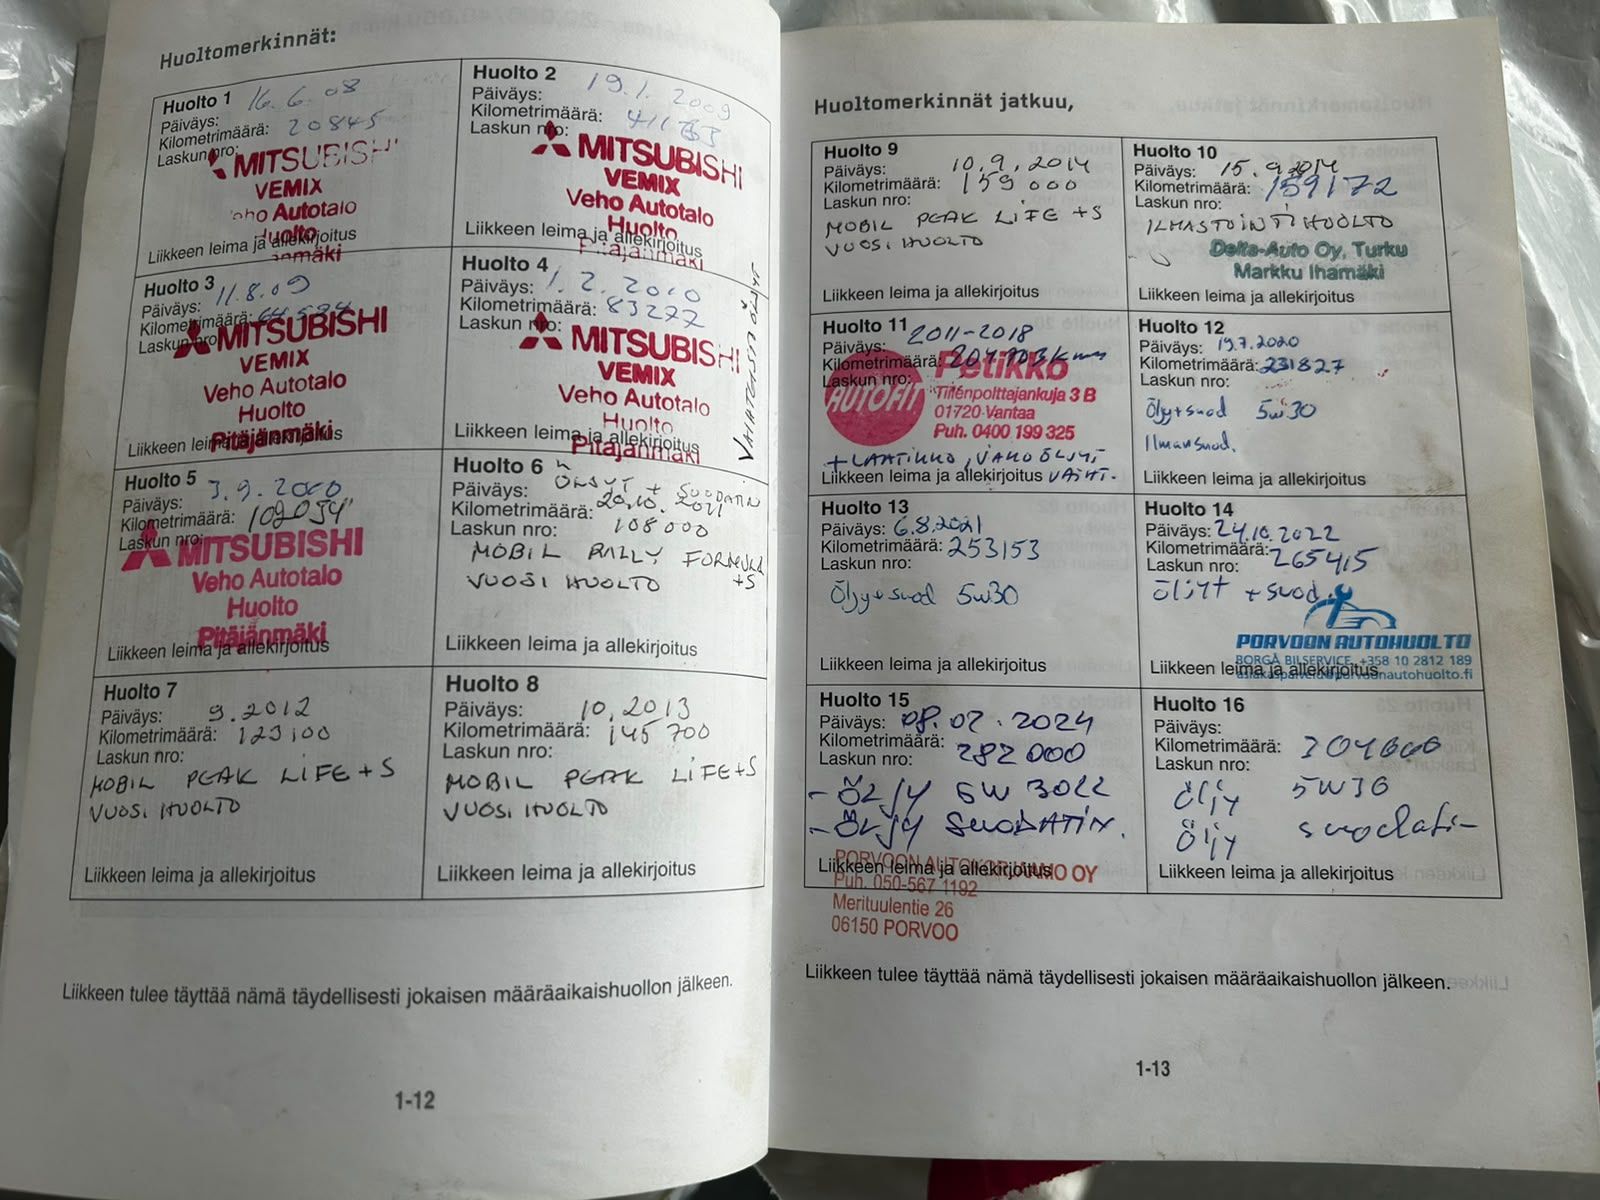 Huoltomerkinnät:
Huolto 1 16.6.08
Päiväys:
Kilometrimäärä: 20845
Laskun nro:
MITSUBISHI
VEMIX
Veho Autotalo
Huolto
Liikkeen leima ja allekirjoitus
Huolto 2
Päiväys: 19.1.2009
Kilometrimäärä:
Laskun nro:
MITSUBISHI
VEMIX
Veho Autotalo
Huolto
Pitäjänmäki
Liikkeen leima ja allekirjoitus
Huolto 3
Päiväys: 11.8.09
Kilometrimäärä:
Laskun nro:
MITSUBISHI
VEMIX
Veho Autotalo
Huolto
Pitäjänmäki
Liikkeen leima ja allekirjoitus
Huolto 4
Päiväys: 1.2.2010
Kilometrimäärä: 83277
Laskun nro:
MITSUBISHI
VEMIX
Veho Autotalo
Huolto
Pitäjänmäki
Liikkeen leima ja allekirjoitus
Huolto 5
Päiväys:
Kilometrimäärä:
Laskun nro:
MITSUBISHI
Veho Autotalo
Huolto
Pitäjänmäki
Liikkeen leima ja allekirjoitus
Huolto 6
Päiväys: + SUODATIN
Kilometrimäärä: 20.10.2011
Laskun nro: 108000
MOBIL RALLY FORMULA
+S
VUOSI HUOLTO
Liikkeen leima ja allekirjoitus
Huolto 7
Päiväys: 9.2012
Kilometrimäärä: 123100
Laskun nro:
MOBIL PEAK LIFE+S
VUOSI HUOLTO
Liikkeen leima ja allekirjoitus
Huolto 8
Päiväys: 10.2013
Kilometrimäärä: 145 700
Laskun nro:
MOBIL PEAK LIFE+S
VUOSI HUOLTO
Liikkeen leima ja allekirjoitus
Liikkeen tulee täyttää nämä täydellisesti jokaisen määräaikaishuollon jälkeen.
1-12
Huoltomerkinnät jatkuu,
Huolto 9
Päiväys: 10.9.2014
Kilometrimäärä: 159 000
Laskun nro:
MOBIL PEAK LIFE +S
VUOSI HUOLTO
Liikkeen leima ja allekirjoitus
Huolto 10
Päiväys: 15.9.2014
Kilometrimäärä: 159172
Laskun nro:
ILMASTOINTIHUOLTO
Delta-Auto Oy, Turku
Markku Ihamäki
Liikkeen leima ja allekirjoitus
Huolto 11
Päiväys:
Kilometrimäärä:
Laskun nro:
AUTOFIT
Petikko
Tiilenpolttajankuja 3 B
01720 Vantaa
Puh. 0400 199 325
+ LAATIKKO,
Liikkeen leima ja allekirjoitus
Huolto 12
Päiväys: 19.7.2020
Kilometrimäärä: 231827
Laskun nro:
Öljy+suod 5w30
Ilmansuod.
Liikkeen leima ja allekirjoitus
Huolto 13
Päiväys: 6.8.2021
Kilometrimäärä: 253153
Laskun nro:
Öljy+suod 5w30
Liikkeen leima ja allekirjoitus
Huolto 14
Päiväys: 24.10.2022
Kilometrimäärä: 265415
Laskun nro:
+ suod.
PORVOON AUTOHUOLTO
BORGÅ BILSERVICE, +358 10 2812 189
asiakaspalvelu@porvoonautohuolto.fi
Liikkeen leima ja allekirjoitus
Huolto 15
Päiväys: 08.02.2024
Kilometrimäärä: 282000
Laskun nro:
- ÖLJY 5W30
- ÖLJY SUODATIN.
Liikkeen leima ja allekirjoitus
PORVOON AUTOKORJAAMO OY
Puh. 050-567 1192
Merituulentie 26
06150 PORVOO
Huolto 16
Päiväys:
Kilometrimäärä: 304000
Laskun nro:
Öljy 5W30
Öljy suodatin
Liikkeen leima ja allekirjoitus
Liikkeen tulee täyttää nämä täydellisesti jokaisen määräaikaishuollon jälkeen.
1-13